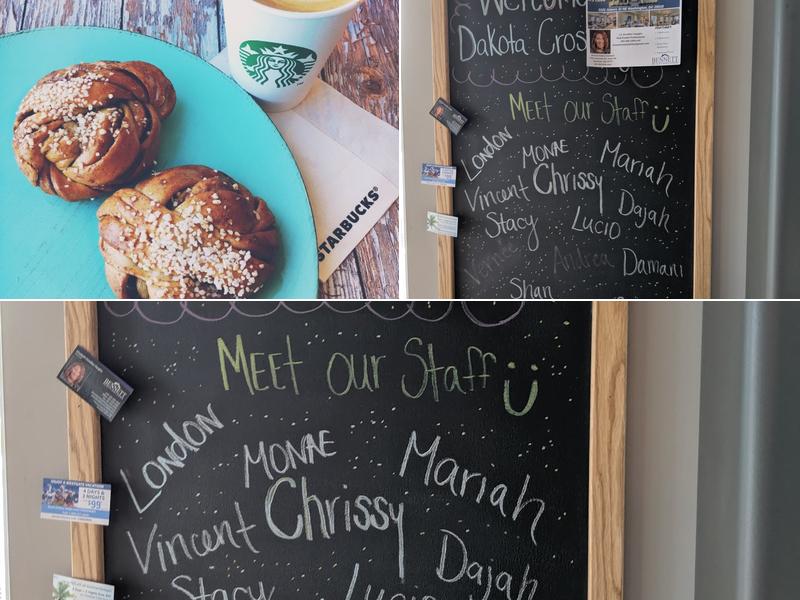 STARBUCKS®
Welcome
Dakota Cros
BENNETT
MEET our Staff
LONDON MONAE Mariah
Vincent Chrissy Dajah
Stacy Lucio
Vernice Andrea Damani
Shan
MEET our Staff
LONDON MONAE Mariah
Vincent Chrissy Dajah
Stacy Lucio
BENNETT
ENJOY A WESTGATE VACATION
4 DAYS &
3 NIGHTS
$99